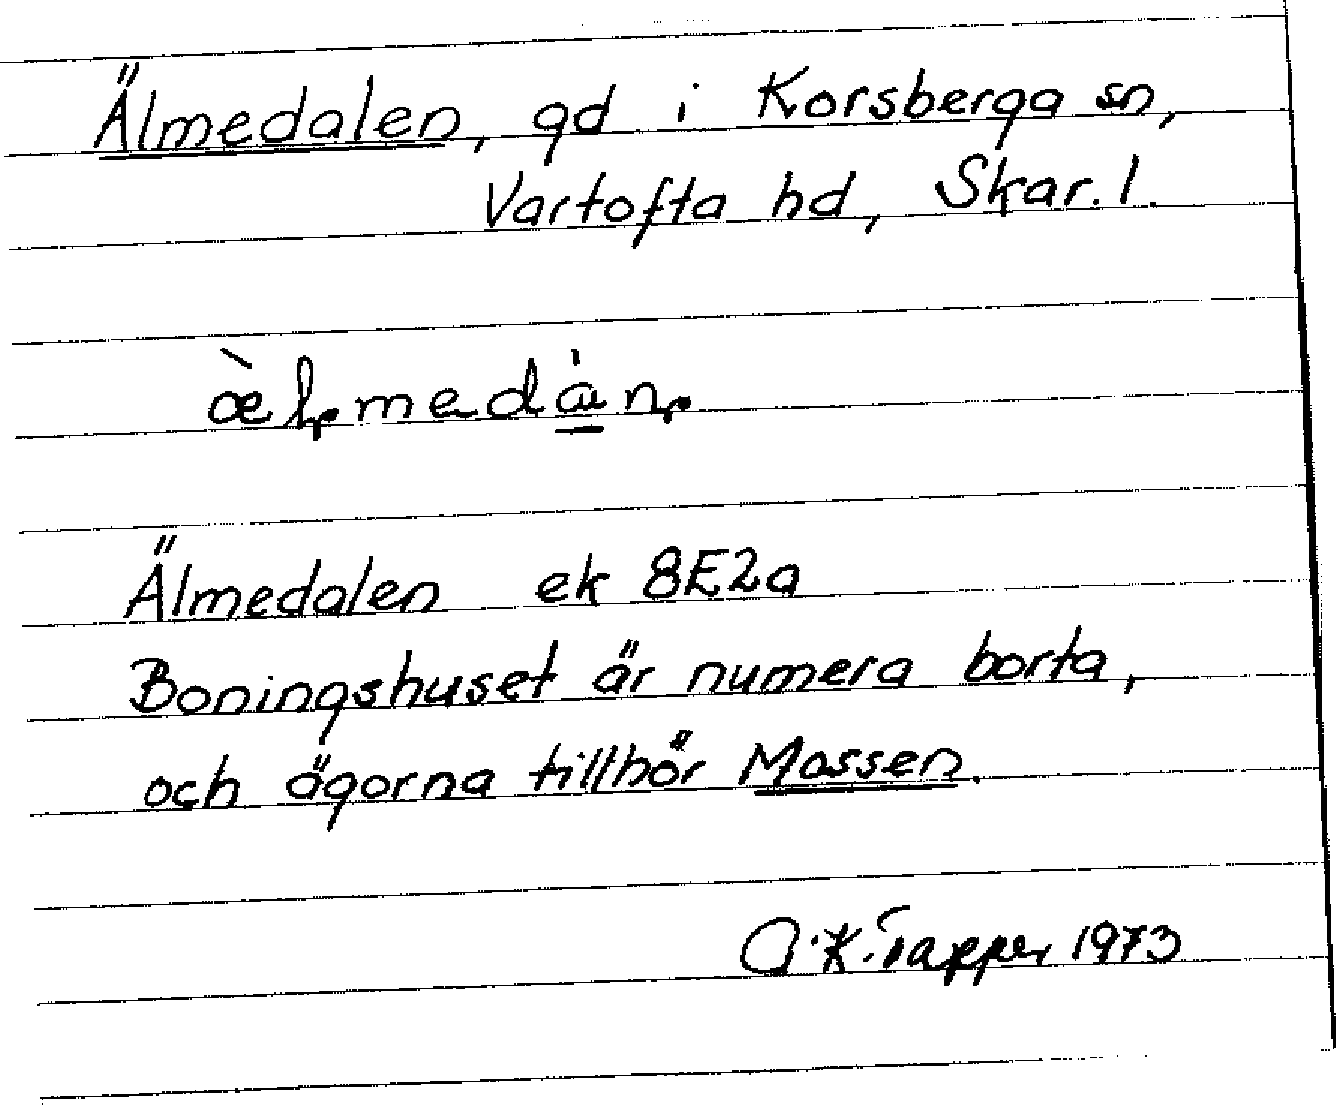 Älmedalen, gd i Korsberga sn,
Vartofta hd, Skar. l.
Älmedalen ek 8E2a
Boningshuset är numera borta,
och ägorna tillhör Mossen.
A.K. Tapper 1973